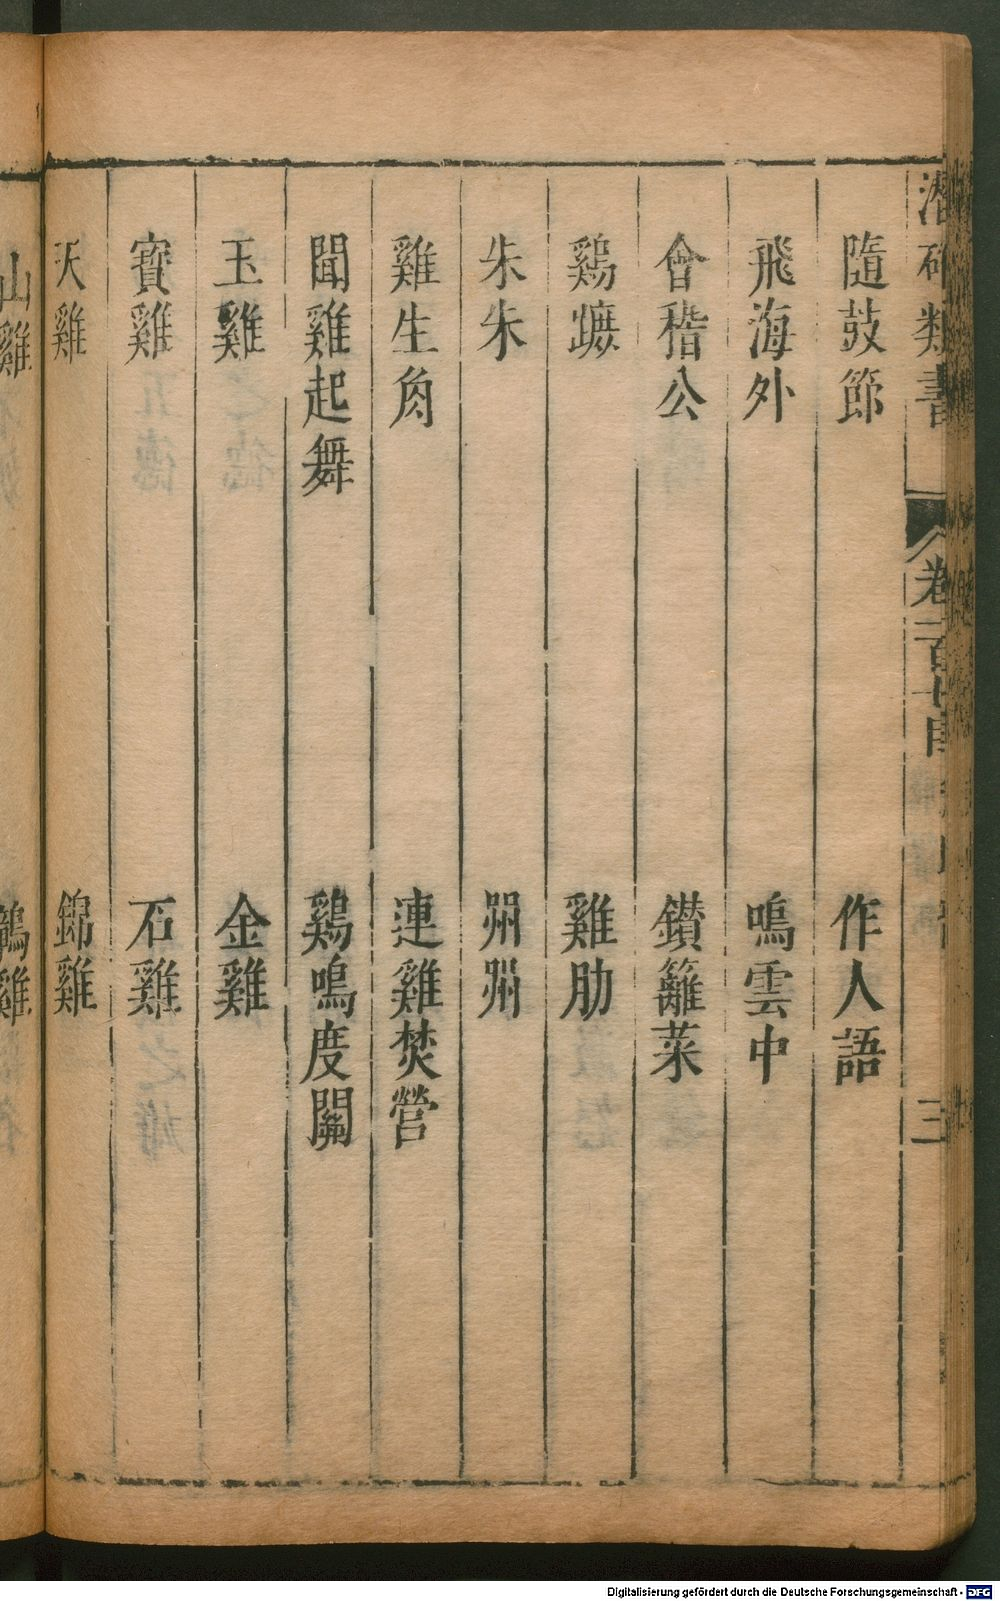 類書
卷一百十四
三
隨鼓節　作人語
飛海外　鳴雲中
會稽公　鑚籬菜
鷄蹠　雞肋
朱朱　喌喌
雞生角　連雞焚營
聞雞起舞　鷄鳴度關
玉雞　金雞
寶雞　石雞
天雞　錦雞
山雞　鶡雞
Digitalisierung gefördert durch die Deutsche Forschungsgemeinschaft - DFG